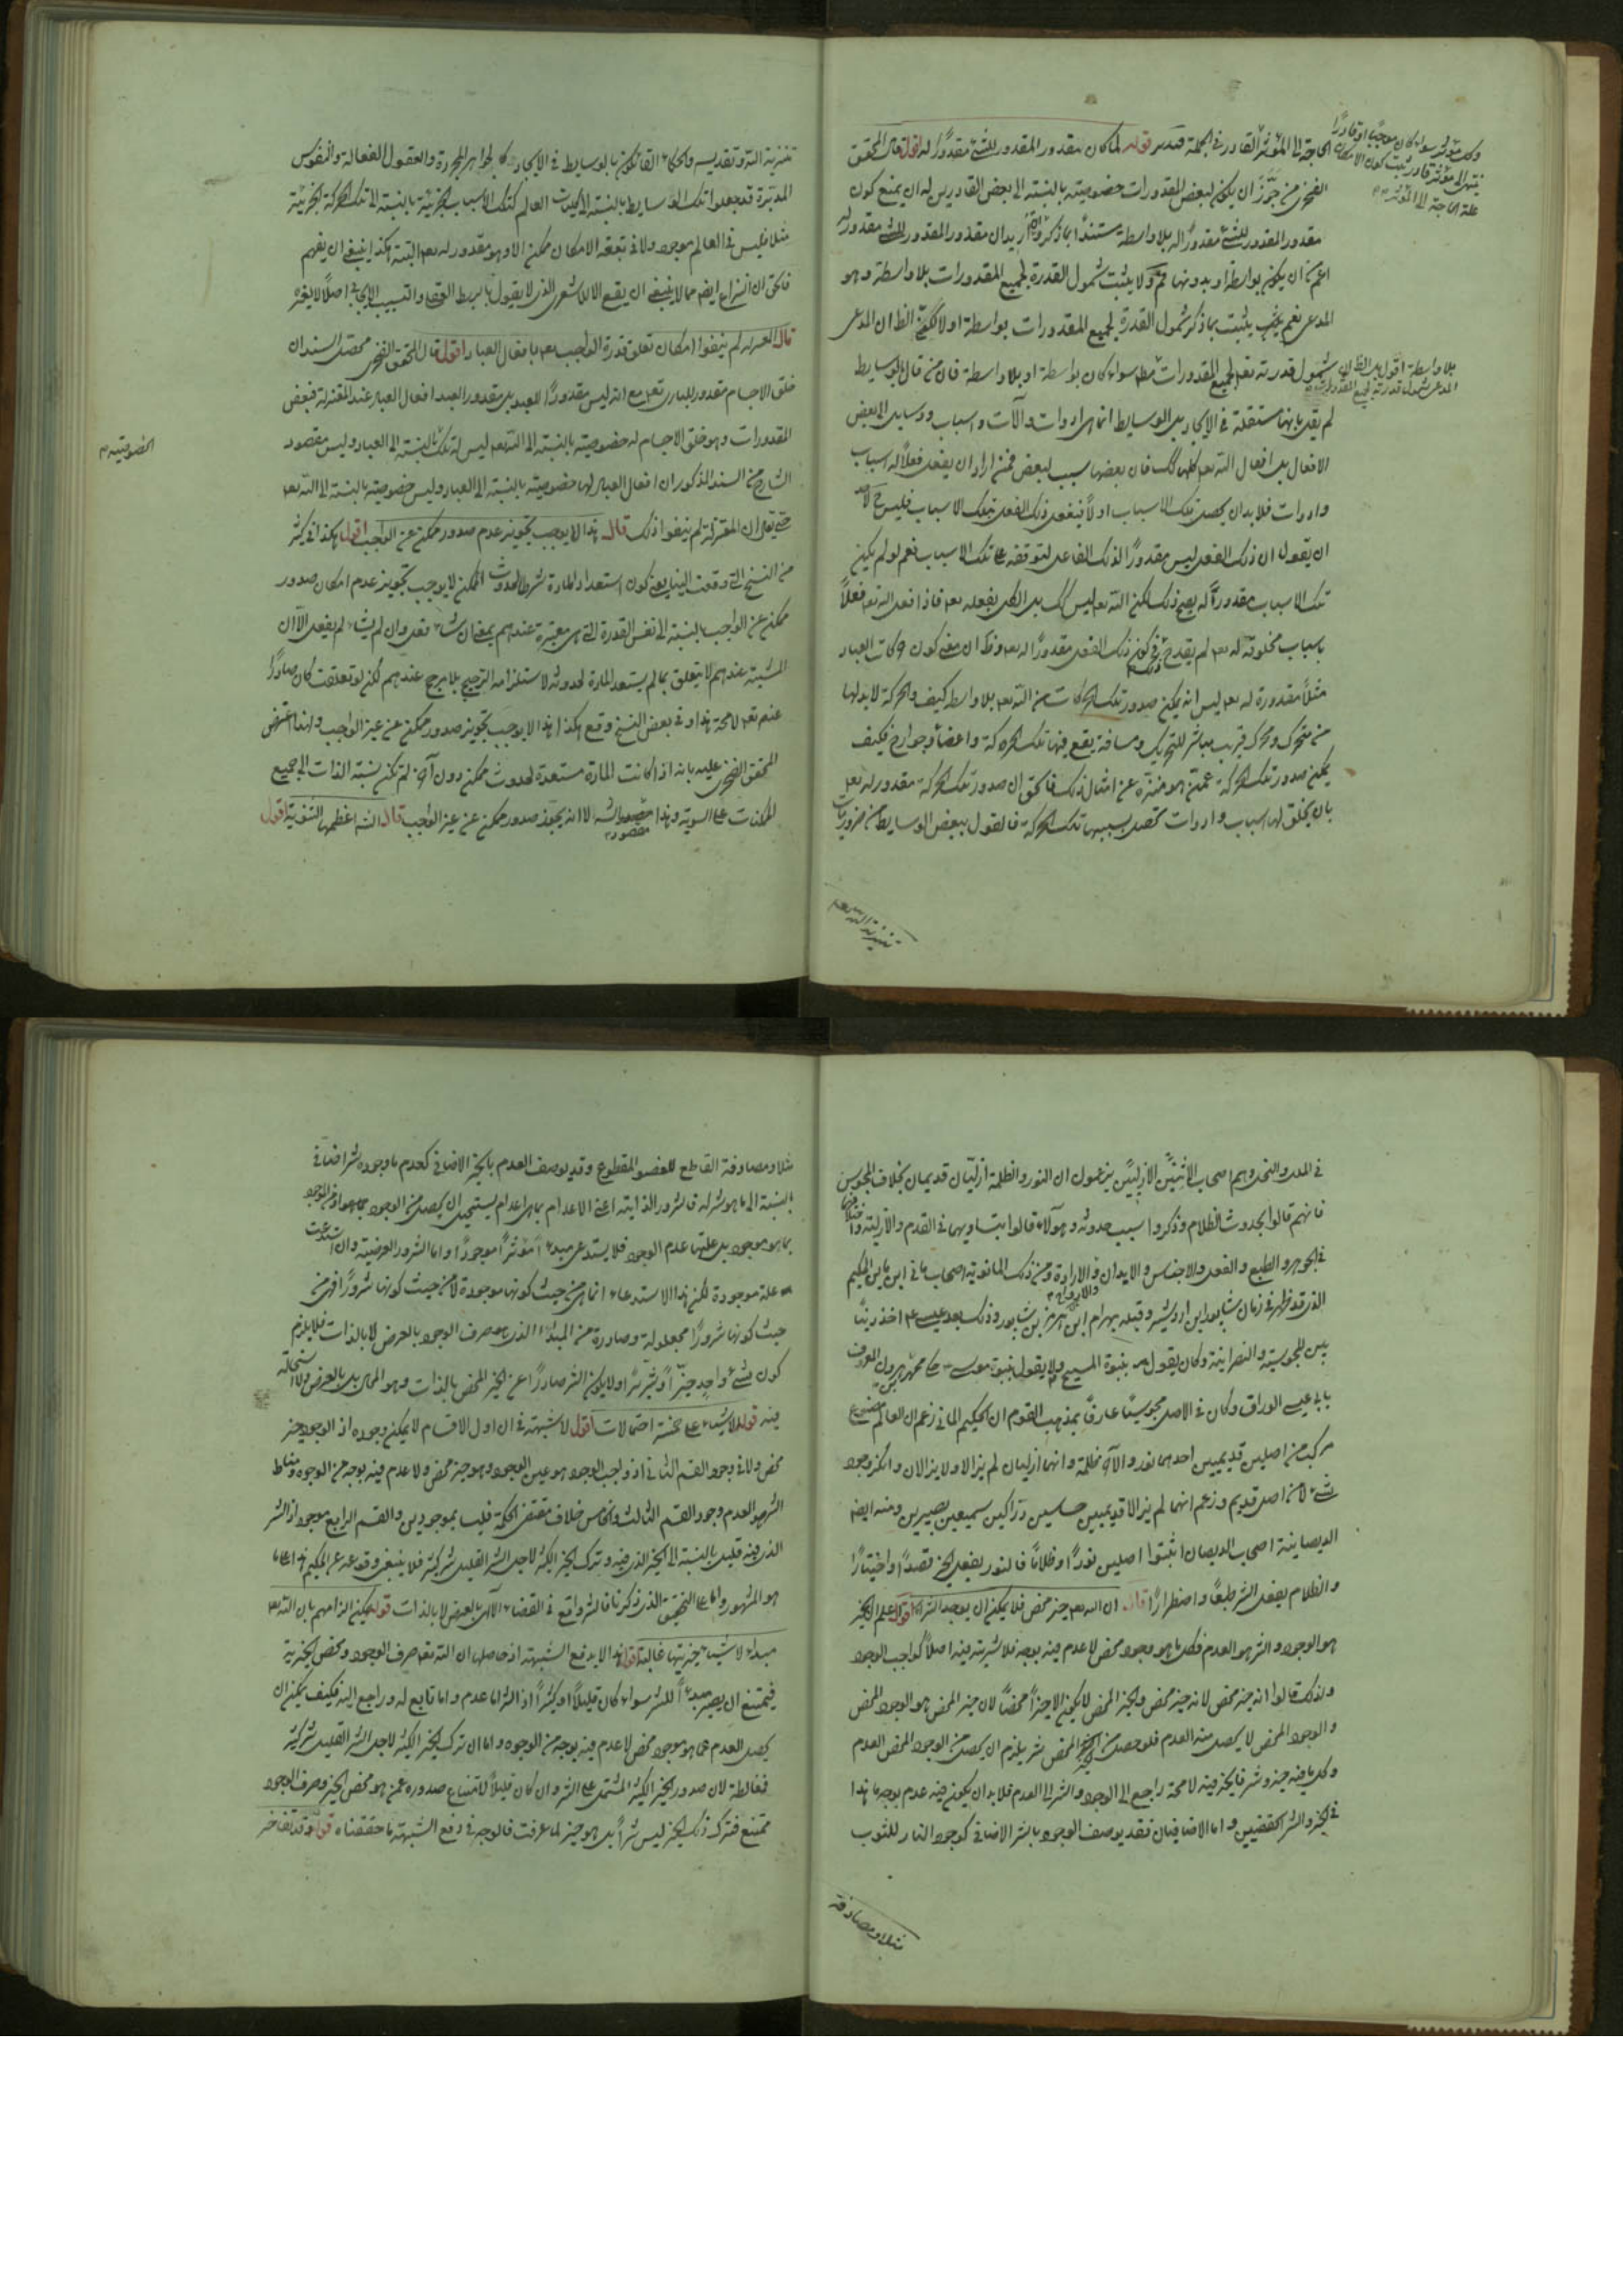 وكل مؤثر سواء كان موجبًا او قادرًا
ينتهى الى مؤثر قادر ثبت كون الامكان
علة الحاجة الى المؤثر
الحاجة الى المؤثر القادر فى الجملة فتدبر قوله لما كان مقدور المقدور للشئ مقدورًا له اقول قال المحقق
الفخرى من جوّز ان يكون لبعض المقدورات خصوصية بالنسبة الى بعض القادرين له ان يمنع كون
مقدور المقدور للشئ مقدورًا له بلا واسطة مستندًا بما ذكر وان اريد ان مقدور المقدور للشئ مقدور له
اعم من ان يكون بواسطة او بدونها فمسلم ولا يثبت شمول القدرة لجميع المقدورات بلا واسطة وهو
المدعى نعم يثبت بما ذكر شمول القدرة لجميع المقدورات بواسطة او لا لكن الظ ان المدعى
بلا واسطة اقول بل الظ ان
المدعى شمول قدرته لجميع المقدورات
شمول قدرته تعالى لجميع المقدورات مط سواء كان بواسطة او بلا واسطة فان من قال بالوسايط
لم يقل بانها مستقلة فى الايجاد بل الوسايط انما هى ادوات وآلات واسباب ووسايل الى بعض
الافعال بل افعال الله تعالى كلها كك فان بعضها سبب لبعض فمن اراد ان يفعل فعلًا له اسباب
وادوات فلا بد ان يحصل تلك الاسباب اولًا فيفعل ذلك الفعل بتلك الاسباب فليس ح لاحد
ان يقول ان ذلك الفعل ليس مقدورًا لذلك الفاعل لتوقفه على تلك الاسباب نعم لو لم يكن
تلك الاسباب مقدورة له يصح ذلك لكن الله تعالى ليس كك بل الكل بفعله تعالى فاذا فعل الله تعالى فعلًا
باسباب مخلوقة له تعالى لم يقدح فى كون ذلك الفعل مقدورًا له تعالى وظ ان معنى كون حركات العباد
مثلًا مقدورة له تعالى ليس انه يمكن صدور تلك الحركات من الله تعالى بلا واسطة كيف والحركة لا بد لها
من متحرك ومحرك قريب مباشر للتحريك ومسافة يقع فيها تلك الحركة واعضاء وجوارح فكيف
يمكن صدور تلك الحركة عمن هو منزه عن امثال ذلك فالحق ان صدور تلك الحركة مقدور له تعالى
بان يخلق لها اسباب وادوات تحصل بسببها تلك الحركة فالقول ببعض الوسايط من ضروريات
تنزيه الله تعالى
تنزيه الله وتقديسه والحكماء القائلون بالوسايط فى الايجاد كالجواهر المجردة والعقول الفعالة والنفوس
المدبرة قد جعلوا تلك الوسايط بالنسبة الى كليات العالم كتلك الاسباب الجزئية بالنسبة الى تلك الحركة الجزئية
مثلا فليس فى العالم موجود ولا فى بقعة الامكان ممكن الا وهو مقدور له تعالى البتة هكذا ينبغى ان يفهم
فالحق ان النزاع ايضا مما لا ينبغى ان يقع الا للاشعرى الذى لا يقول بالربط العقلى والتسبيب الايجابى اصلًا لا لغيره
قال المعتزلة لم ينفوا امكان تعلق قدرة الواجب تعالى بافعال العباد اقول قال المحقق الفخرى محصل السند ان
خلق الاجسام مقدور للبارى تعالى مع انه ليس مقدورًا للعبد بل مقدور العبد افعال العباد عند المعتزلة فبعض
المقدورات وهو خلق الاجسام له خصوصية بالنسبة الى الله تعالى ليس له تلك بالنسبة الى العباد وليس مقصود
الخصوصية
الشارح من السند المذكور ان افعال العباد لها خصوصية بالنسبة الى العباد وليس خصوصية بالنسبة الى الله تعالى
حتى يقال ان المعتزلة لم ينفوا ذلك قال هذا لا يوجب تجويز عدم صدور ممكن عن الواجب اقول هكذا فى كثير
من النسخ التى وقعت الينا يعنى كون استعداد المادة شرطا لحدوث الممكن لا يوجب تجويز عدم امكان صدور
ممكن عن الواجب بالنسبة الى نفس القدرة التى هى معتبرة عندهم بمعنى ان شاء فعل وان لم يشاء لم يفعل الا ان
المشية عندهم لا يتعلق بما لم يستعد المادة لحدوثه لاستلزامه الترجيح بلا مرجح عندهم لكن لو تعلقت كان صادرًا
عنه تعالى لا محة هذا وفى بعض النسخ وقع هكذا هذا لا يوجب تجويز صدور ممكن عن غير الواجب ولهذا اعترض
المحقق الفخرى عليه بانه اذا كانت المادة مستعدة لحدوث ممكن دون آخر لم تكن نسبة الذات الى جميع
الممكنات على السوية وهذا مقصود الشه لا انه يجوز صدور ممكن عن غير الواجب قال الشه اعظمها الثنوية اقول
فى الملل والنحل وهم اصحاب الاثنين الازليين يزعمون ان النور والظلمة ازليان قديمان بخلاف المجوس
فانهم قالوا بحدوث الظلام وذكروا سبب حدوثه وهؤلاء قالوا بتساويهما فى القدم والازلية واختلافهما
فى الجوهر والطبع والفعل والاجناس والابدان والارواح والارادة ومن ذلك المانوية اصحاب مانى ابن فاتن الحكيم
الذى قد ظهر فى زمان شابور ابن اردشير وقتله بهرام ابن هرمز بن شابور وذلك بعد عيسى ع اخذ دينًا
بين المجوسية والنصرانية وكان يقول بنبوة المسيح ع ولا يقول بنبوة موسى ع حكى محمد بن هرون المعروف
بابى عيسى الوراق وكان فى الاصل مجوسيًا عارفًا بمذهب القوم ان الحكيم المانى زعم ان العالم مصنوع
مركب من اصلين قديمين احدهما نور والآخر ظلمة وانهما ازليان لم يزالا ولا يزالان وانكر وجود
شئ لا من اصل قديم وزعم انهما لم يزالا قديمين حساسين درّاكين سميعين بصيرين ومنه ايضا
الديصانية اصحاب الديصان اثبتوا اصلين نورًا وظلامًا فالنور يفعل الخير قصدًا واختيارًا
والظلام يفعل الشر طبعًا واضطرارًا قال ان الله تعالى خير محض فلا يمكن ان يوجد الشر اقول اعلم ان الخير
هو الوجود والشر هو العدم فكل ما هو وجود محض لا عدم فيه بوجه فلا شرية فيه اصلًا كواجب الوجود
ولذلك قالوا انه خير محض لانه خير محض والخير المحض لا يكون الا خيرًا محضًا لان خير المحض هو الوجود المحض
والوجود المحض لا يحصل منه العدم فلو حصل من الخير المحض شر يلزم ان يحصل من الوجود المحض العدم
وكل ما فيه خير وشر فالخير فيه لا محة راجع الى الوجود والشر الى العدم فلا بد ان يكون فيه عدم بوجه ما هذا
فى الخير والشر الحقيقيين واما الاضافيان فقد يوصف الوجود بالشر الاضافى كوجود النار للثوب
مثلا ومصادفة
مثلا ومصادفة القاطع للعضو المقطوع وقد يوصف العدم بالخير الاضافى كعدم ما وجوده شر اضافى
بالنسبة الى ما هو شر له فالشرور الذاتية اعنى الاعدام بما هى اعدام يستحيل ان يحصل من الوجود بما هو او من الموجود
بما هو موجود بل علتها عدم الوجود فلا يستدعى مبدءًا مؤثرًا موجودًا واما الشرور العرضية وان استدعت
علة موجودة لكن هذا الاستدعاء انما هى من حيث كونها موجودة لا من حيث كونها شرورًا فهى من
حيث كونها شرورًا مجعولة وصادرة من المبداء الذى هو صرف الوجود بالعرض لا بالذات فلا يلزم
كون شئ واحد خيرًا وشريرًا ولا يكون الشر صادرًا عن الخير المحض بالذات وهو المحال بل بالعرض ولا استحالة
فيه قوله الاشياء على خمسة احتمالات اقول لا شبهة فى ان اول الاقسام لا يمكن وجوده اذ الوجود خير
محض ولا فى وجود القسم الثانى اذ واجب الوجود هو عين الوجود وهو خير محض ولا عدم فيه بوجه من الوجوه ومناط
الشر هو العدم ووجود القسم الثالث والخامس خلاف مقتضى الحكمة فليسا بموجودين والقسم الرابع موجود اذ الشر
الذى فيه قليل بالنسبة الى الخير الذى فيه وترك الخير الكثير لاجل الشر القليل شر كثير فلا ينبغى وقوعه عن الحكيم هذا على ما
هو المشهور واما على التحقيق الذى ذكرنا فالشر واقع فى القضاء الالهى بالعرض لا بالذات قوله يمكن الزامهم بان الله تعالى
مبداء لاشياء خيريتها غالبة اقول هذا لا يدفع الشبهة اذ حاصلها ان الله تعالى صرف الوجود ومحض الخيرية
فيمتنع ان يصير مبدءًا للشر سواء كان قليلًا او كثيرًا اذ الشر اما عدم واما تابع له وراجع اليه فكيف يمكن ان
يحصل العدم مما هو موجود محض لا عدم فيه بوجه من الوجوه واما ان ترك الخير الكثير لاجل الشر القليل شر كثير
فمغالطة لان صدور الخير الكثير المشتمل على الشر وان كان قليلًا لامتناع صدوره عمن هو محض الخير وصرف الوجود
ممتنع فترك ذلك الخير ليس شرًا بل هو خير لما عرفت فالوجه فى دفع الشبهة ما حققناه قوله وقد تفاخر